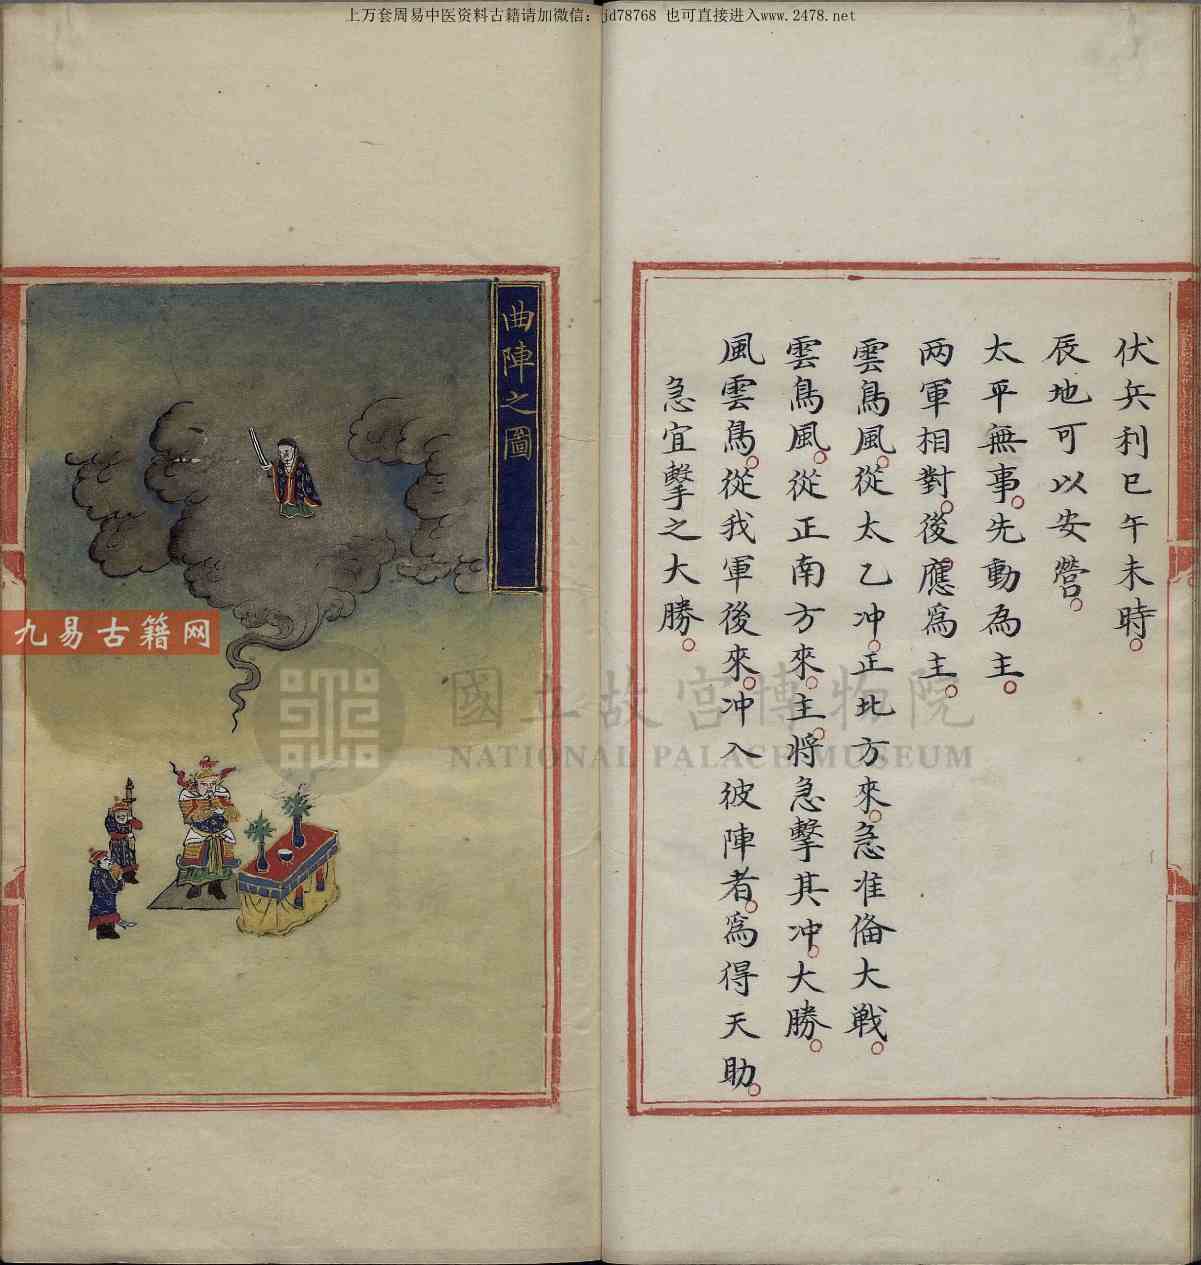 上万套周易中医资料古籍请加微信：jd78768 也可直接进入www.2478.net
伏兵利巳午未時。
辰地可以安營。
太平無事。先動為主。
两軍相對。後應為主。
雲鳥風。從太乙冲。正北方來。急准俻大戰。
雲鳥風。從正南方來。主將急擊其冲。大勝。
風雲鳥。從我軍後來。冲入彼陣者。為得天助。
急宜擊之大勝。
曲陣之圖
九易古籍网
國立故宮博物院
NATIONAL PALACE MUSEUM